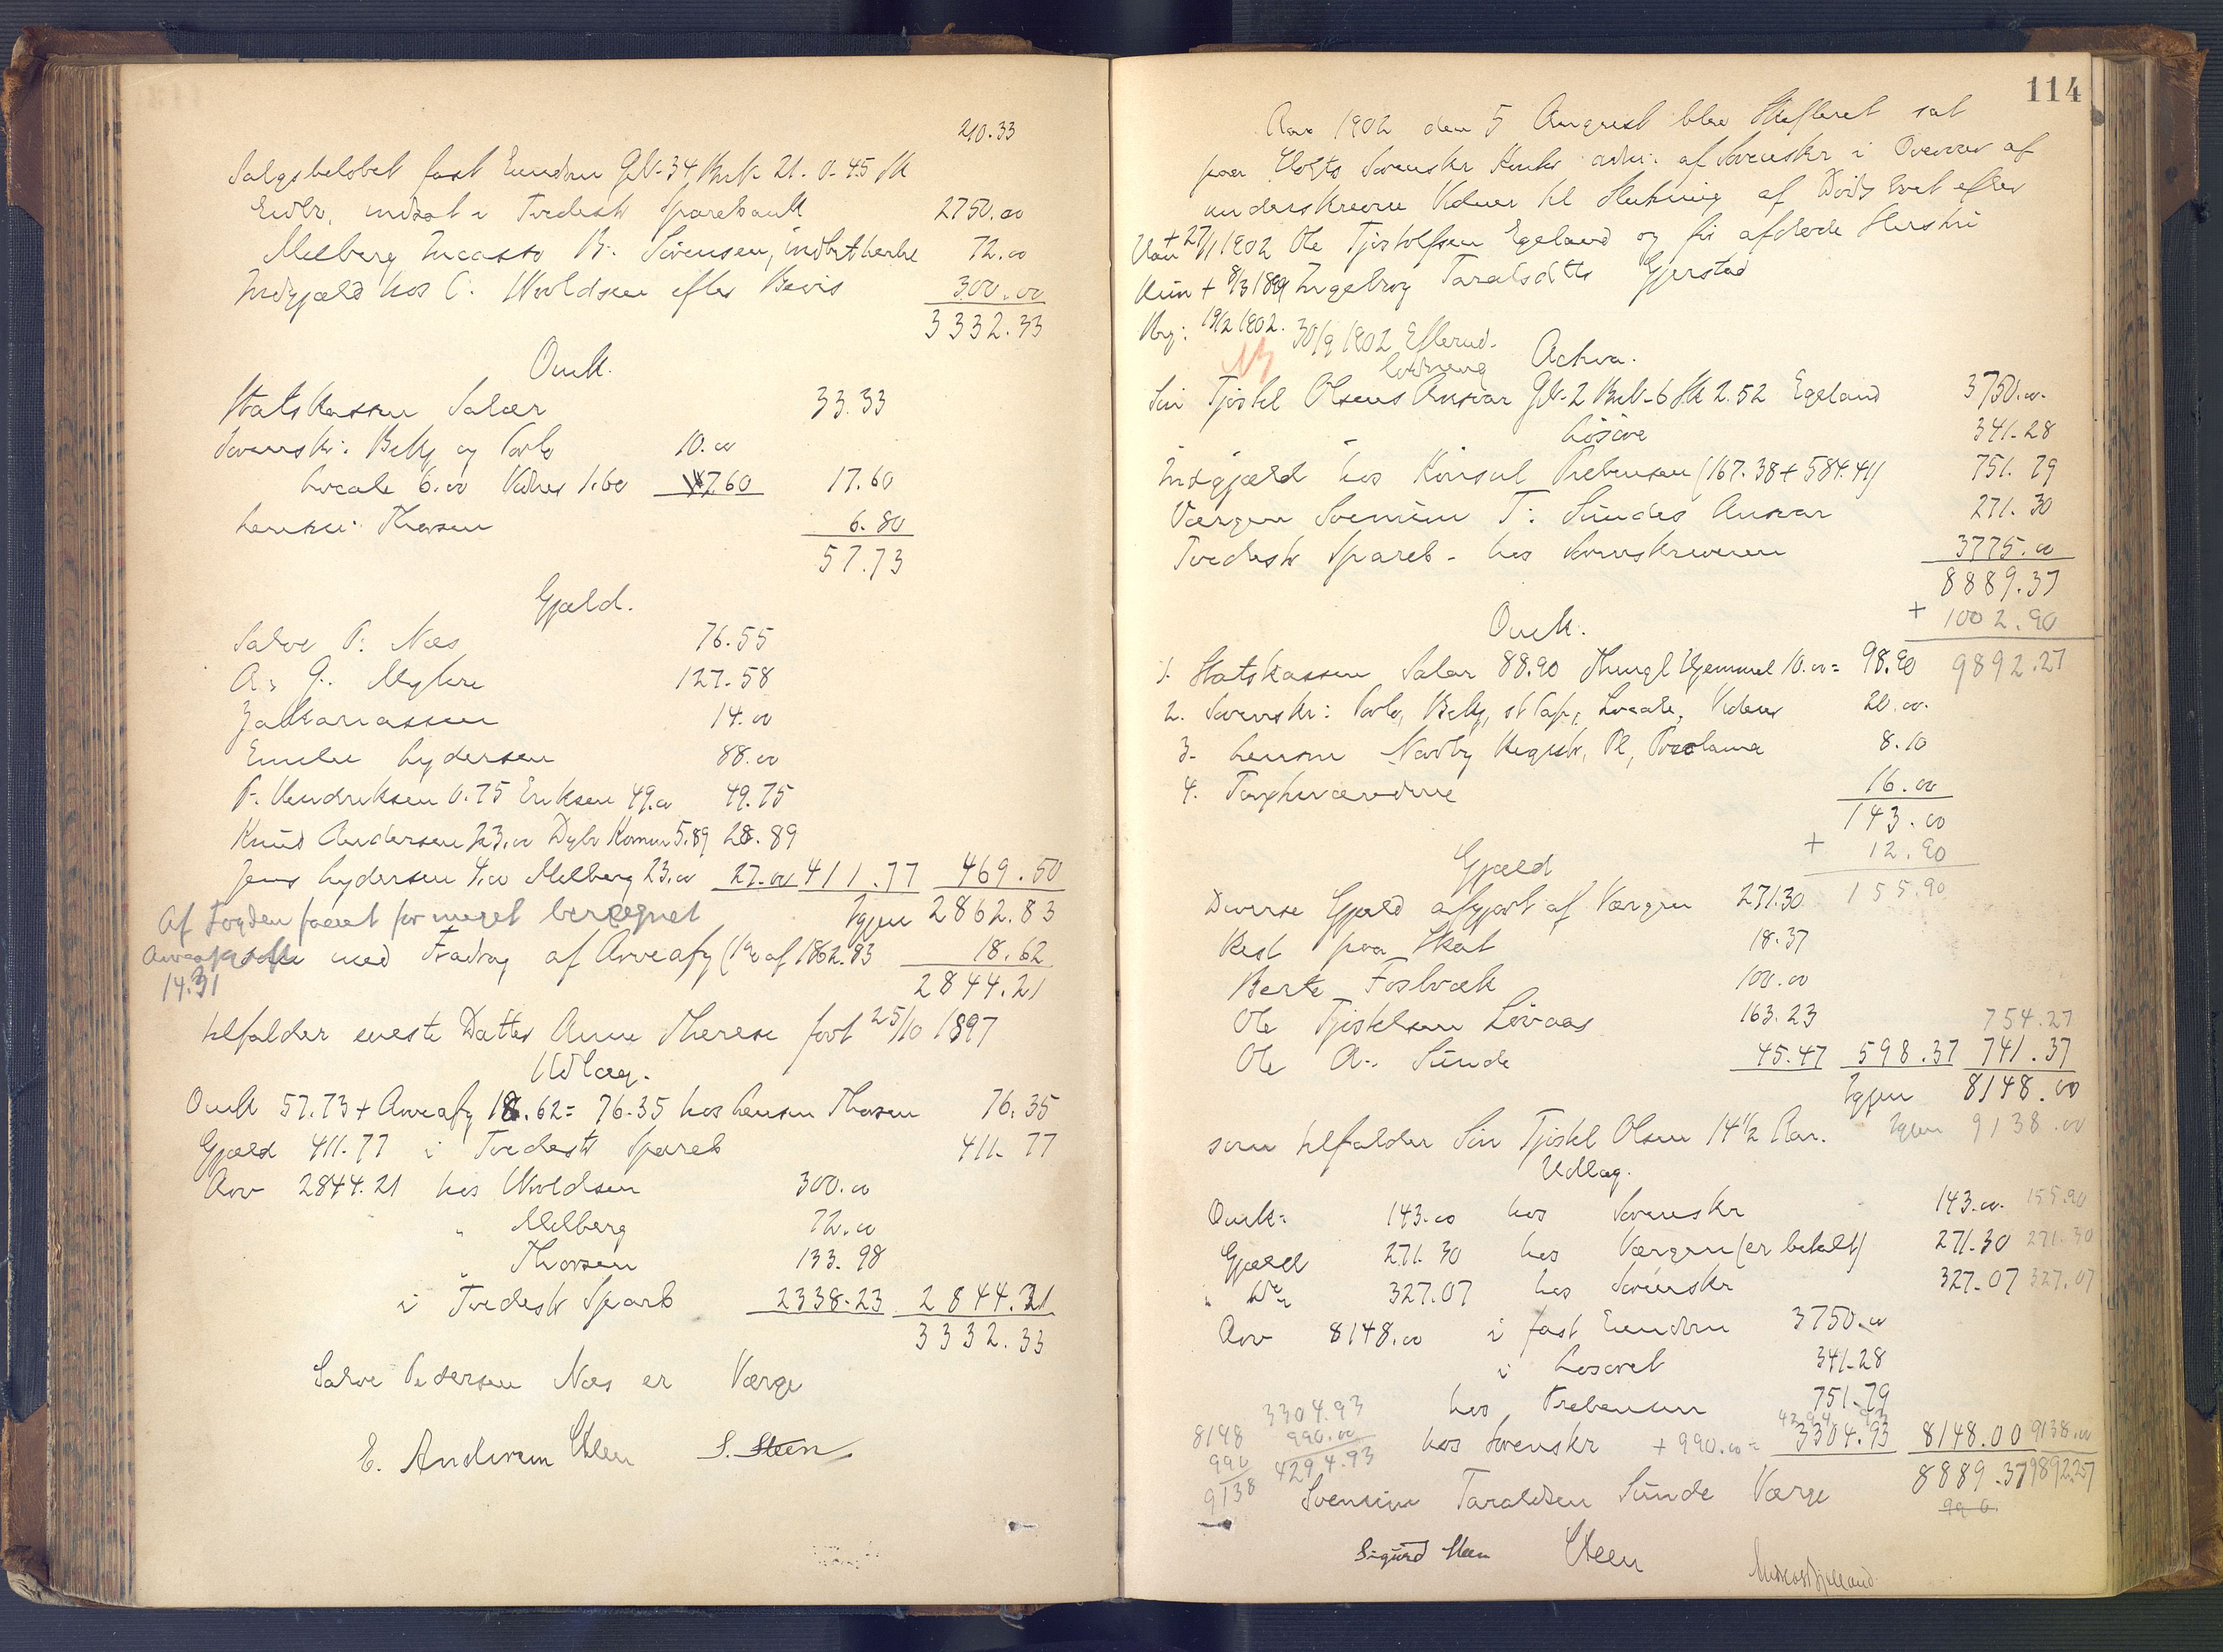 210.33
Salgsbeløbet fast Eiendom GN-34 BrN 21. 0-45 Sk
Eidbo, indsat i Tvedestr Sparebank 2750.00
Melberg Incasso P. Sørensen, 72.00
Indgjæld hos C. Woldsen efter Bevis 300.00
3332.33
Omk.
Statskassen Salær 33.33
Sorenskr: Bekj og Porto 10.00
Locale 6.00 Vidner 1.60 7.60 17.60
Lensm: Thorsen 6.80
57.73
Gjæld.
Salve P: Næs 76.55
A: G. Myhre 127.58
Zakariassen 14.00
Emilie Lydersen 88.00
P. Hendriksen 0.75 Eriksen 49.00 49.75
Knud Andersen 23.00 Dybv Komm 5.89 28.89
Jens Lydersen 4.00 Melberg 23.00 27.00 411.77 469.50
Af Fogden faaet for meget beregnet Igjen 2862.83
med Fradrag af Arveafg (1% af 1862.83 18.62
14.31 2844.21
tilfalder eneste Datter Anne Therese født 25/10 1897
Udlæg.
Omk 57.73 + Arveafg 18.62 = 76.35 hos Lensm Thorsen 76.35
Gjæld 411.77 i Tvedestr Spareb 411.77
Arv 2844.21 hos Woldsen 300.00
" Melberg 72.00
" Thorsen 133.98
i Tvedestr Sparb 2338.23 2844.21
3332.33
Salve Pedersen Næs er Værge
E. Andersen Steen S. Steen
114
Aar 1902 den 5 August blev Skifteret sat
paa Holts Sorenskr Kontor adm: af Sorenskr i Overvær af
underskrevne Vidner til Slutning af Dødsboet efter
Han + 27/1 1902 Ole Tjøstolfsen Egeland og før afdøde Hustru
Hun + 8/3 1889 Ingeborg Taralsdtr Gjerstad
Reg: 19/2 1902. 30/9 1902 Efterud-
lodning Activa.
Søn Tjøstel Olsens Ansvar GN-2 BrN-6 Sk 2.52 Egeland 3750.00
Løsøre 341.28
Indgjæld hos Konsul Prebensen (167.38 + 584.41) 751.79
Værgen Svenum T: Sundes Ansvar 271.30
Tvedestr Spareb - hos Sorenskriveren 3775.00
8889.37
+ 1002.90
Omk. 9892.27
1. Statskassen Salær 88.90 Thingl Hjemmel 10.00 = 98.90
2. Sorenskr: Porto, Bekj, st Pap, Locale, Vidner 20.00
3. Lensm Nærby Registr, Pl, Proclama 8.10
4. 16.00
143.00
+ 12.90
155.90
Gjæld
Diverse Gjæld afgjort af Værgen 271.30
Rest paa Skat 18.37
Berte Fosbræk 100.00
Ole Tjøstelsen Løvaas 163.23 754.27
Ole A. Sunde 45.47 598.37 741.37
Igjen 8148.00
som tilfalder Søn Tjøstel Olsen 14 1/2 Aar. Igjen 9138.00
Udlæg.
Omk: 143.00 hos Sorenskr 143.00 155.90
Gjæld 271.30 hos Værgen (er betalt) 271.30 271.30
" Do 327.07 hos Sorenskr 327.07 327.07
Arv 8148.00 i fast Eiendom 3750.00
i Løsøret 341.28
hos Prebensen 751.79
4294.93
hos Sorenskr + 990.00 = 3304.93 8148.00 9138.00
8889.37 9892.27
990
3304.93
990.00
4294.93
8148
990
9138
Taraldsen Sunde Værge
Sigurd Steen Steen